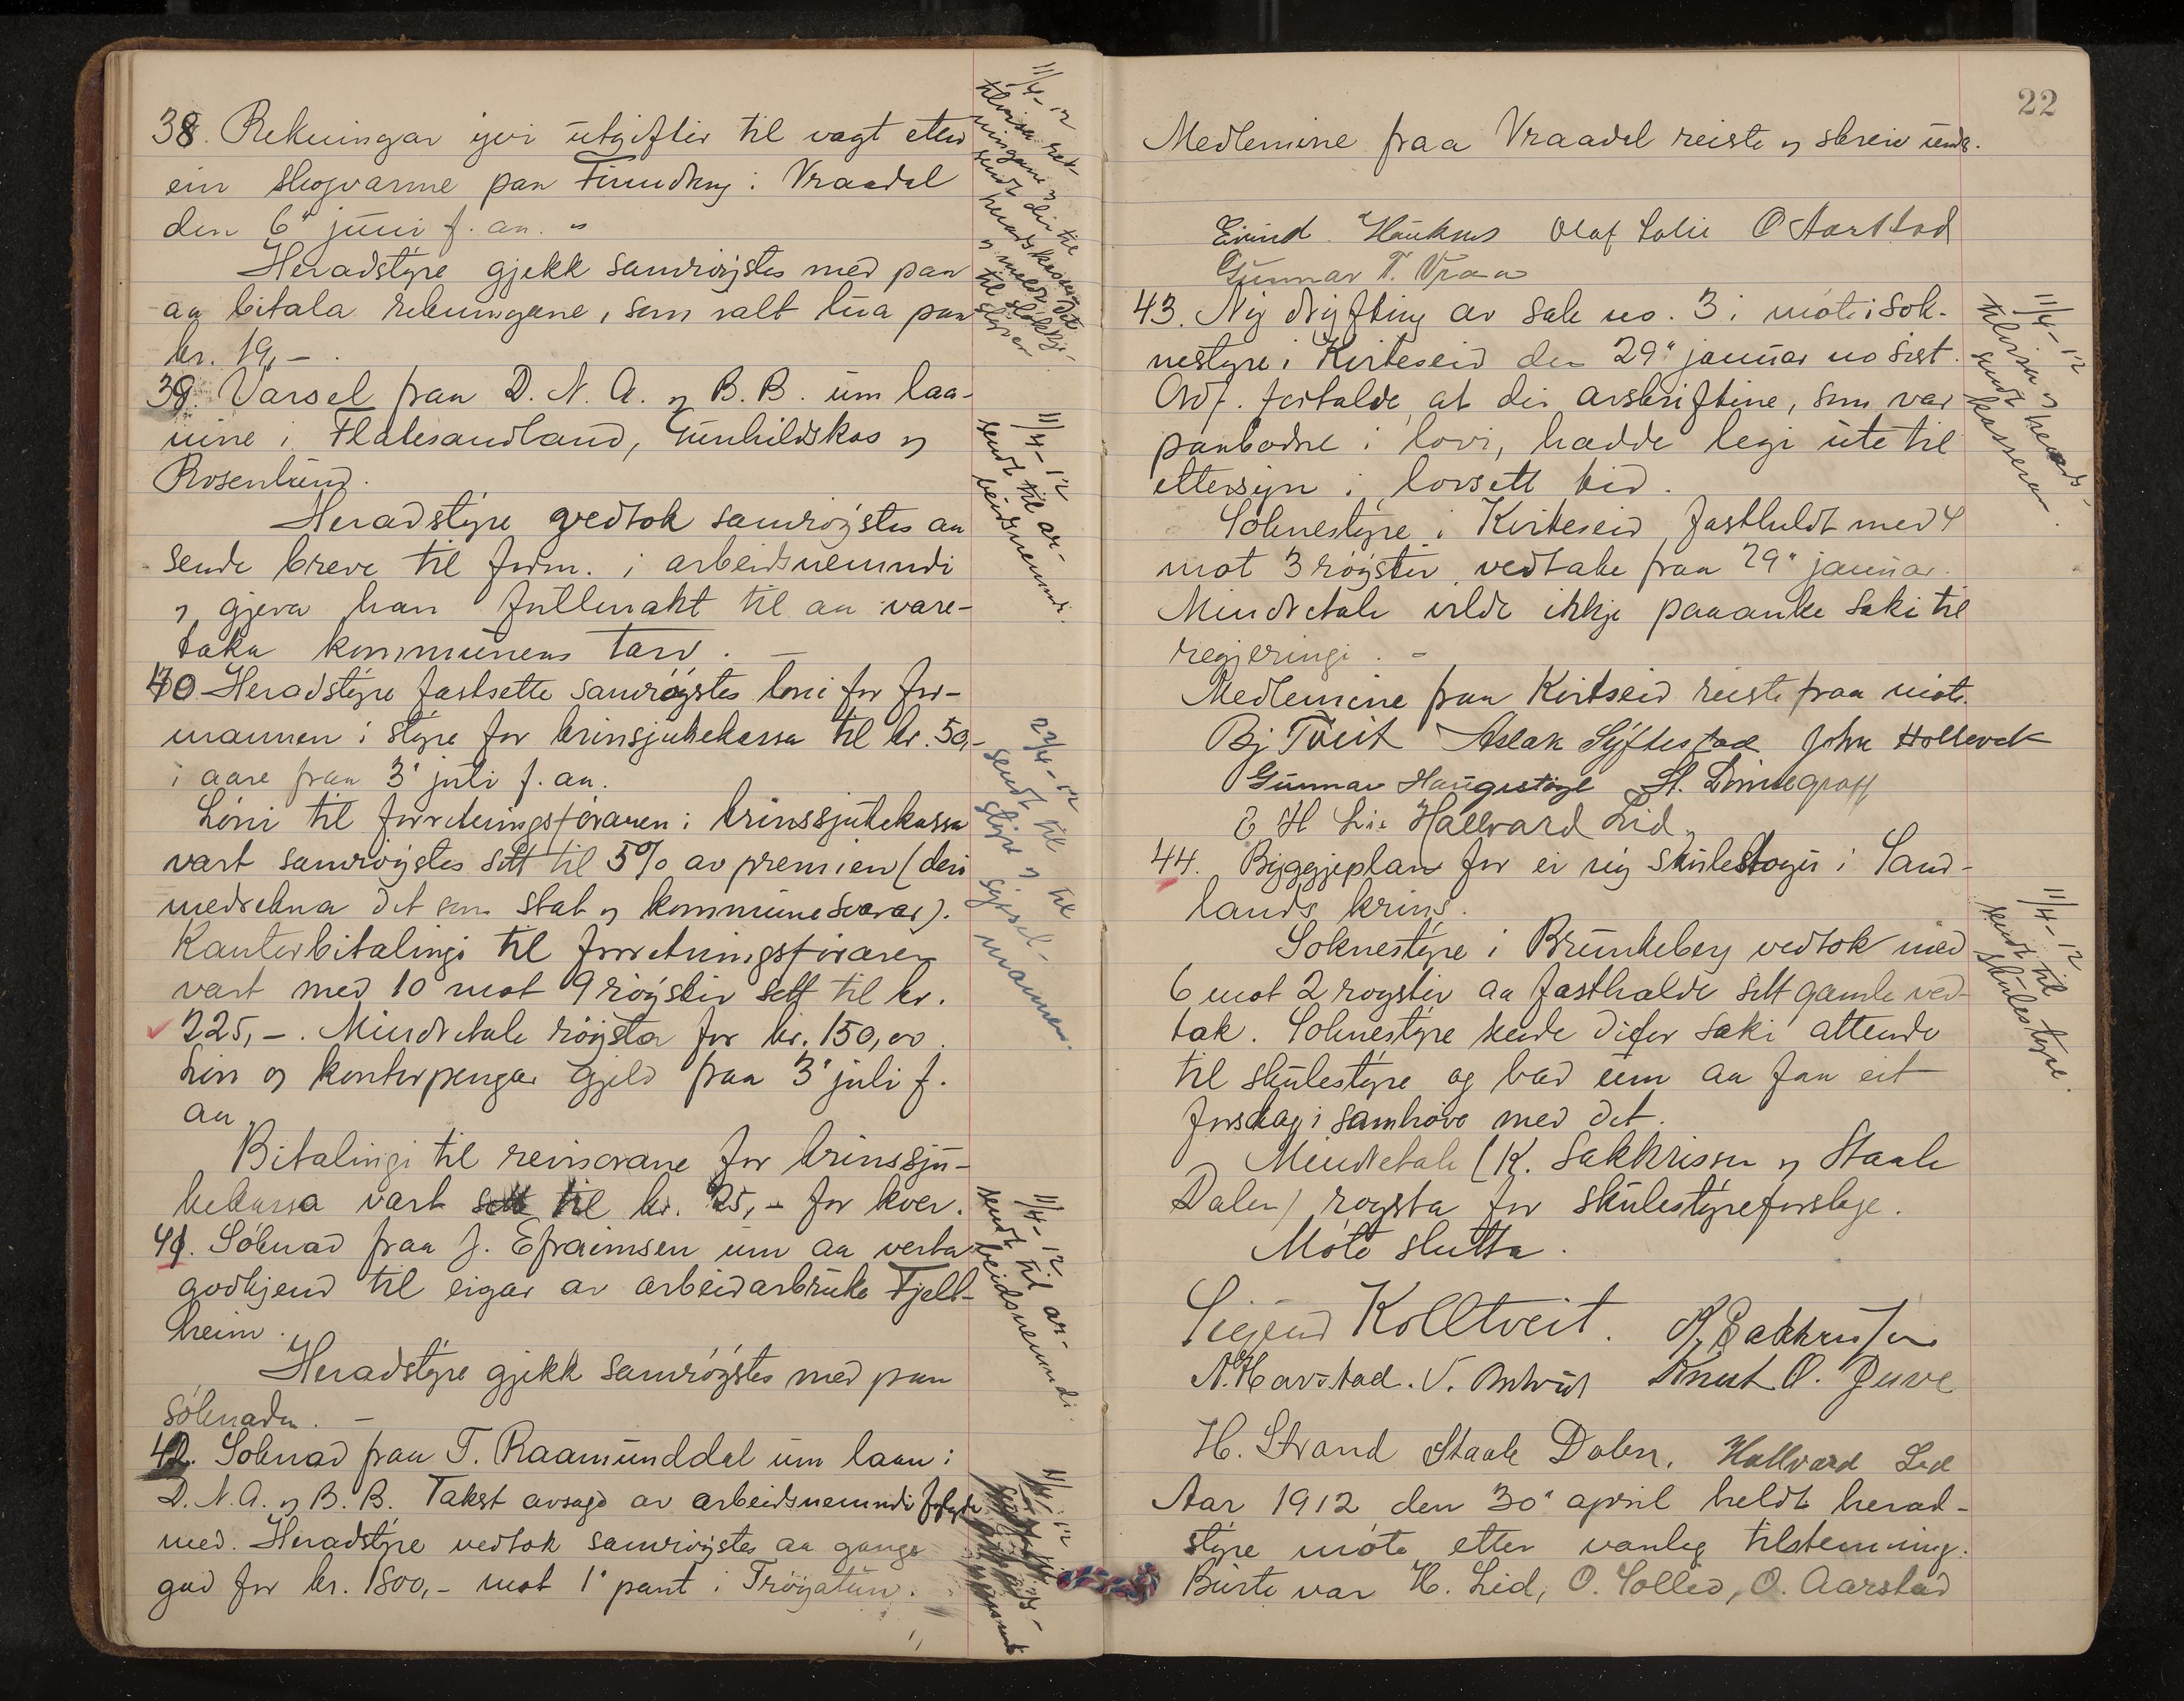 38. Rekningar yvi utgifter til vagt etter
ein skogvarme paa i Vraadal
den 6" juni f. aa. "
Heradstyre gjekk samröystes med paa
aa bitala rekningane, som valt ūta paa
kr. 19,- .
39. Varsel fraa D. N. A. og B. B. um laa-
nine i Flatesandland, Gunhildskaas og
Rosenlund.
Heradstyre vedtok samröystes aa
sende breve til form. i arbeidsnemndi
og gjeva han fullmakt til aa vare-
taka kommunens tarv. –
40 Heradstyre fastsette samröystes löni for for-
mannen i styre for krinsjukekassa til kr. 50,-
i aare fraa 3' juli f. aa.
Löni til forretningsföraren i krinssjukekassa
vart samröystes sett til 5% av premien (deri
medrekna det som stat og kommune svarar).
Kontorbitalingi til forretningsföraren
vart med 10 mot 9 röyster sett til kr.
225,-. Mindretale röysta for kr. 150,00.
Lön og kontorpengar gjeld fraa 3' juli f.
aa.
Bitalingi til revisorane for krinssju-
kekassa vart sett til kr. 25,- for kver.
41. Söknad fraa J. Efraimsen um aa verta
godkjend til eigar av arbeidarbruke Fjell-
heim.
Heradstyre gjekk samröystes med paa
söknaden. –
42. Söknad fraa T. Raamunddal um laan i
D. N. A. og B. B. Takst avsagd av arbeidsnemndi fylgde
med. Heradstyre vedtok samröystes aa ganga
god for kr. 1800,- mot 1' pant i Tröyatun.
11/4-12
tilvisa rek-
ningane og
sendt dei til
heradskasserar
og melde dette
til
11/4-12
sendt til ar-
beidsnemndi.
22/4-12
sendt til
styre og til
syssel-
mannen.
11/4-12
sendt til ar-
beidsnemndi.
11/4-12
22
Medlemine fraa Vraadal reiste og skreiv under.
Eivind Haukaas Olaf Solli O Aarstad
Gunnar T. Vraa
43. Ny dryfting av sak no. 3 i möte i sok-
nestyre i Kviteseid den 29" januar no sist.
Ordf. fortalde at dei avskriftine, som var
paabodne i lovi, hadde legi ute til
ettersyn i lovsett tid.
Soknestyre i Kviteseid fastheldt med 4
mot 3 röyster vedtake fraa 29" januar.
Mindretale vilde ikkje paaanke saki til
regjeringi. –
Medlemine fraa Kvitseid reiste fraa möte.
Bj Tveit Aslak Syftestad John Holtevek
Gunnar Haugestöyl
E H Lie Hallvard Lid
44. Byggjeplan for ei ny skulestoga i Sand-
lands krins.
Soknestyre i Brunkeberg vedtok med
6 mot 2 royster aa fasthalde sitt gamle ved-
tak. Soknestyre sende difor saki attende
til skulestyre og bad um aa faa eit
forslag i samhöve med det.
Mindretale (K. Sakkrissen og Staale
Dalen) roysta for skulestyreforslage.
Möte slutta.
Siejend Kolltveit. K. Sakkrissen
N. Havstad. Knut O. Juve
H. Strand Staale Dalen, Hallvard Lid
Aar 1912 den 30" april heldt herad-
styre möte etter vanleg tilstemning.
Burte var H. Lid, O. Sollid, O. Aarstad
11/4-12
tilvisa og
sendt herads-
kasseraren.
11/4-12
sendt til
skulestyre.